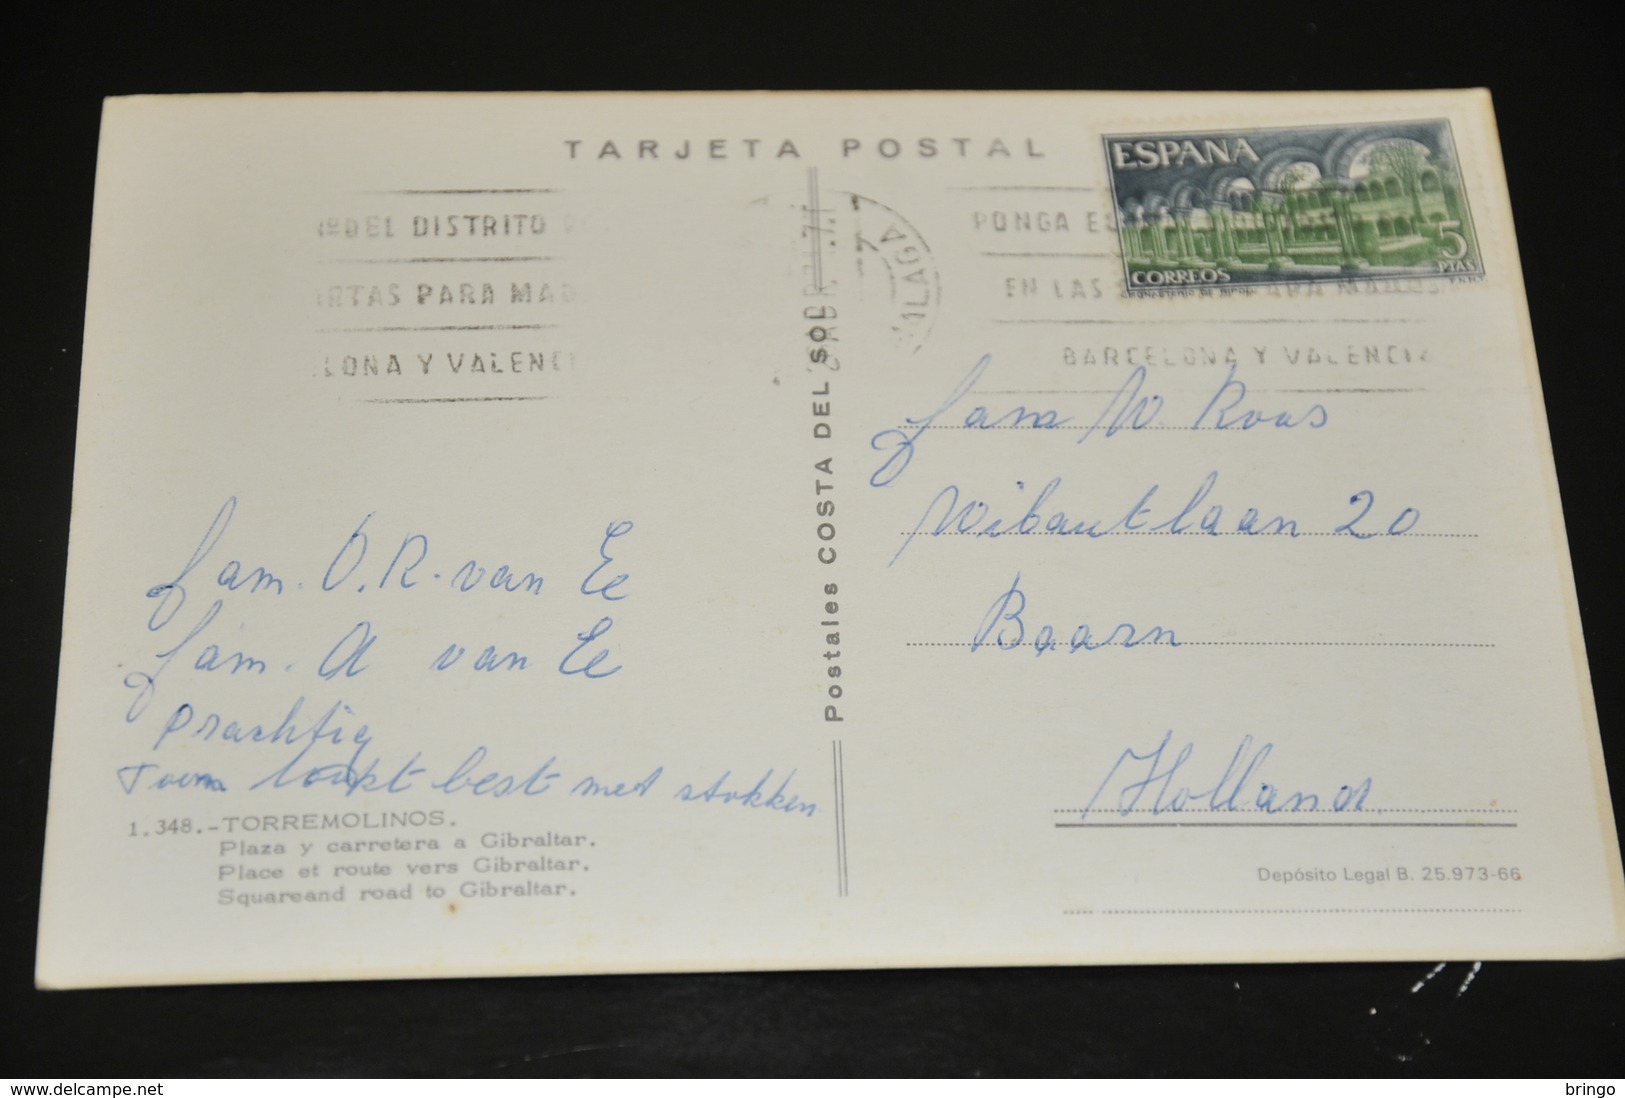 TARJETA POSTAL
Nº DEL DISTRITO
PARA
Y
MALAGA
PONGA
EN LAS
BARCELONA Y VALENCIA
ESPANA
5
PTAS
CORREOS
Postales COSTA DEL SOL
fam. O.R. van Ee
fam. A van Ee
Prachtig
Toon loopt best met stokken
1.348.-TORREMOLINOS.
Plaza y carretera a Gibraltar.
Place et route vers Gibraltar.
Squareand road to Gibraltar.
fam W. Roos
Wibautlaan 20
Baarn
Holland
Depósito Legal B. 25.973-66
www.delcampe.net
bringo